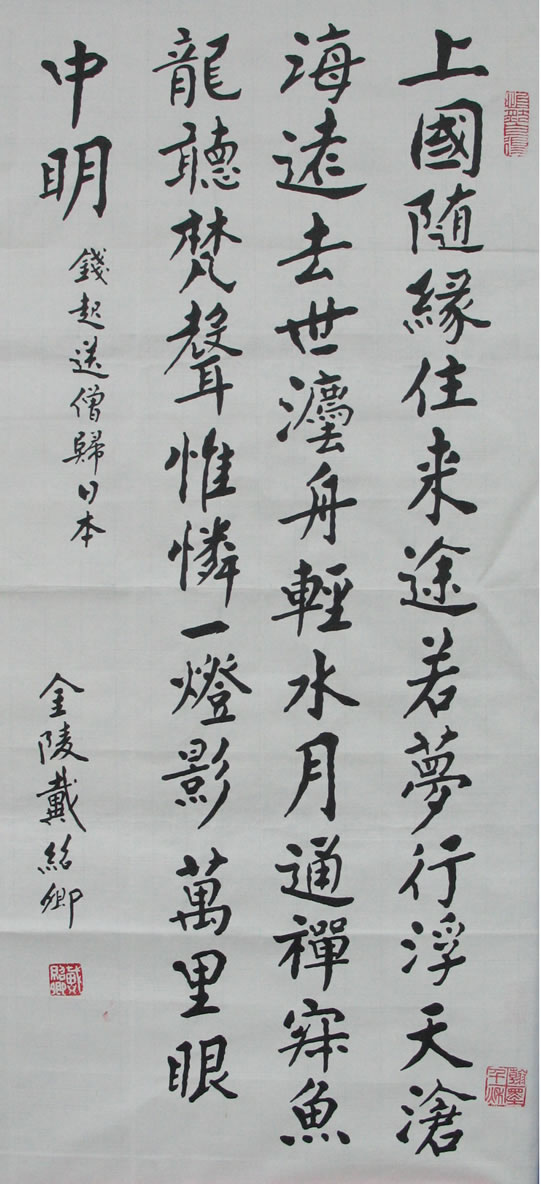 上國随緣住来途若夢行浮天滄
海遠去世灋舟輕水月通禪寂魚
龍聽梵聲惟憐一燈影萬里眼
中明
錢起送僧歸日本
金陵戴紹卿
戴紹卿